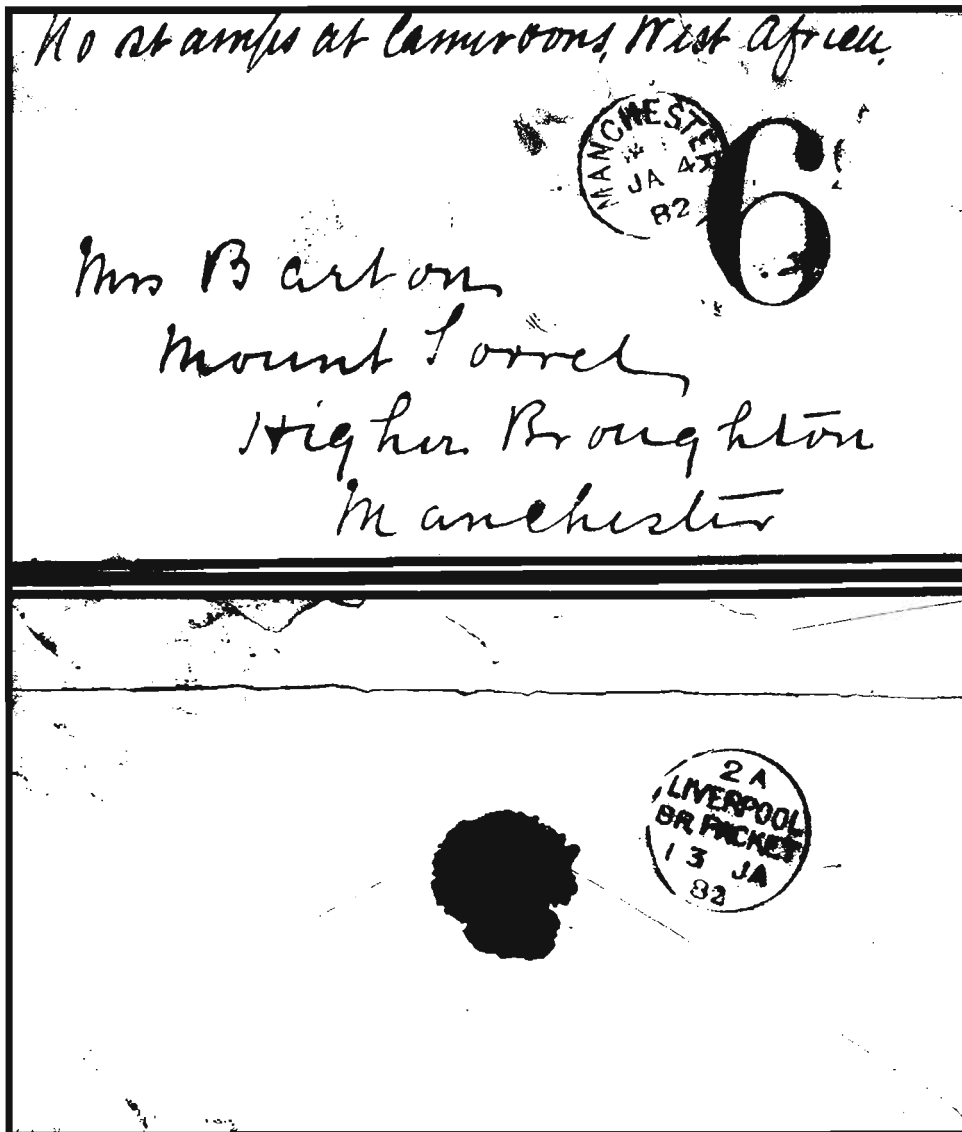 No stamps at Cameroons, West Africa.
MANCHESTER
JA 4
82
6
Mrs Barton
Mount Sorrel
Higher Broughton
Manchester
2 A
LIVERPOOL
BR. PACKET
13 JA
82